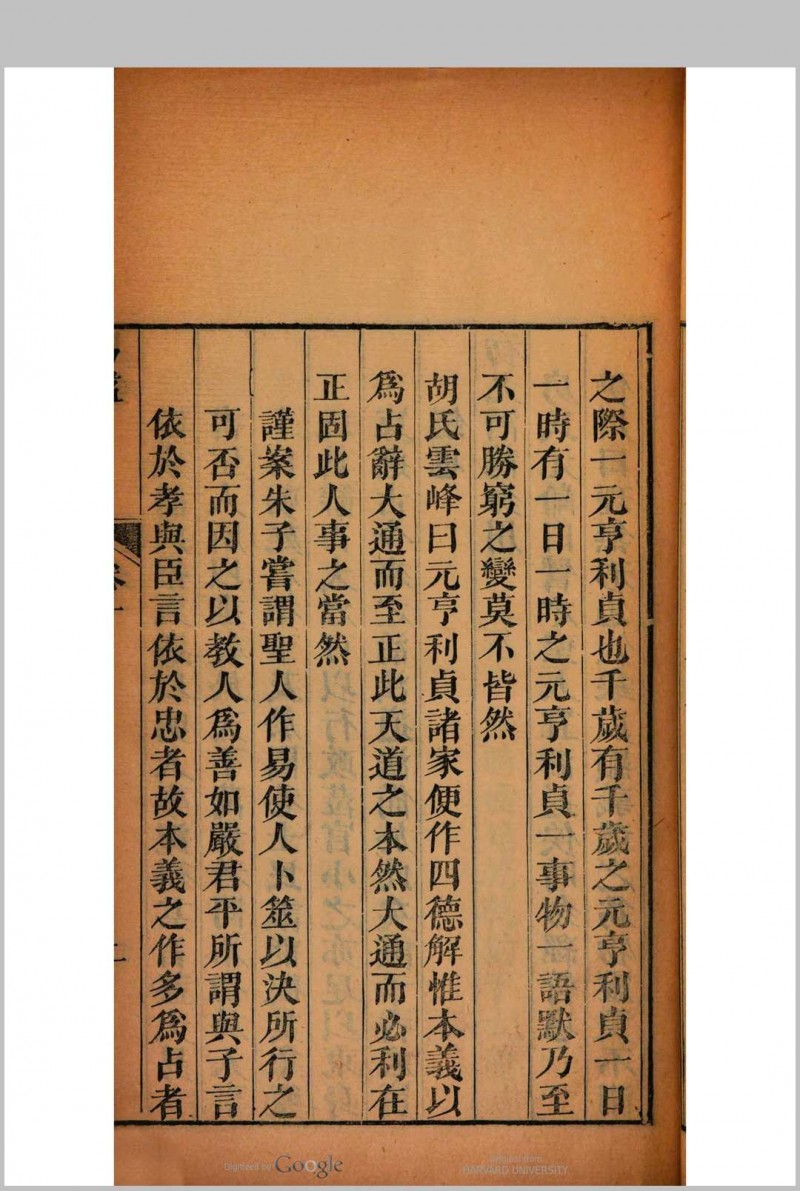 之際一元亨利貞也千歲有千歲之元亨利貞一日
一時有一日一時之元亨利貞一事物一語默乃至
不可勝窮之變莫不皆然
胡氏雲峰曰元亨利貞諸家便作四德解惟本義以
為占辭大通而至正此天道之本然大通而必利在
正固此人事之當然
謹案朱子嘗謂聖人作易使人卜筮以決所行之
可否而因之以教人為善如嚴君平所謂與子言
依於孝與臣言依於忠者故本義之作多為占者
卷一
二
Digitized by Google
Original from
HARVARD UNIVERSITY